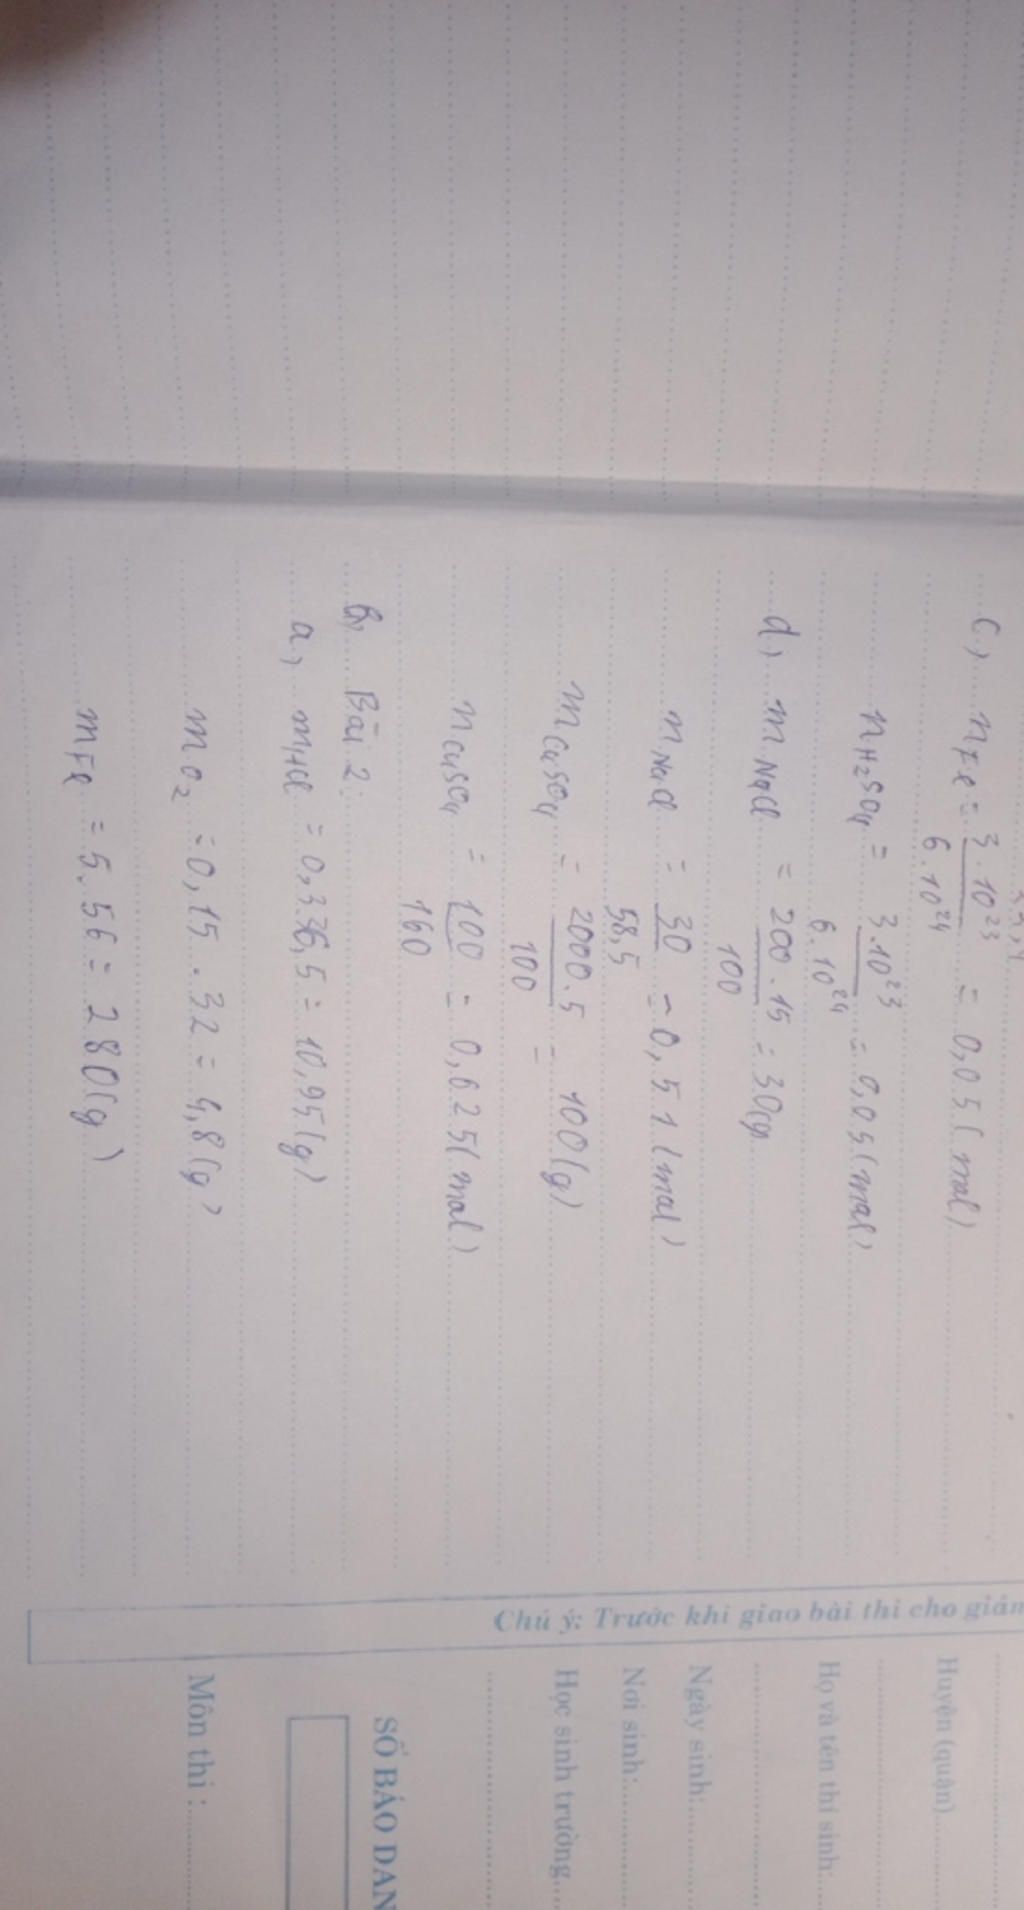 c, nFe = 3.10²³ / 6.10²⁴ = 0,05 (mol)
nH₂SO₄ = 3.10²³ / 6.10²⁴ = 0,05 (mol)
d, mNaCl = 200.15 / 100 = 30(g)
nNaCl = 30 / 58,5 = 0,51 (mol)
mCuSO₄ = 2000.5 / 100 = 100(g)
nCuSO₄ = 100 / 160 = 0,625 (mol)
Bài 2:
a, mHCl = 0,3.36,5 = 10,95 (g)
mO₂ = 0,15.32 = 4,8 (g)
mFe = 5.56 = 280 (g)
Chú ý: Trước khi giao bài thi cho giám
Huyện (quận)
Họ và tên thí sinh:
Ngày sinh:
Nơi sinh:
Học sinh trường
SỐ BÁO DAN
Môn thi :